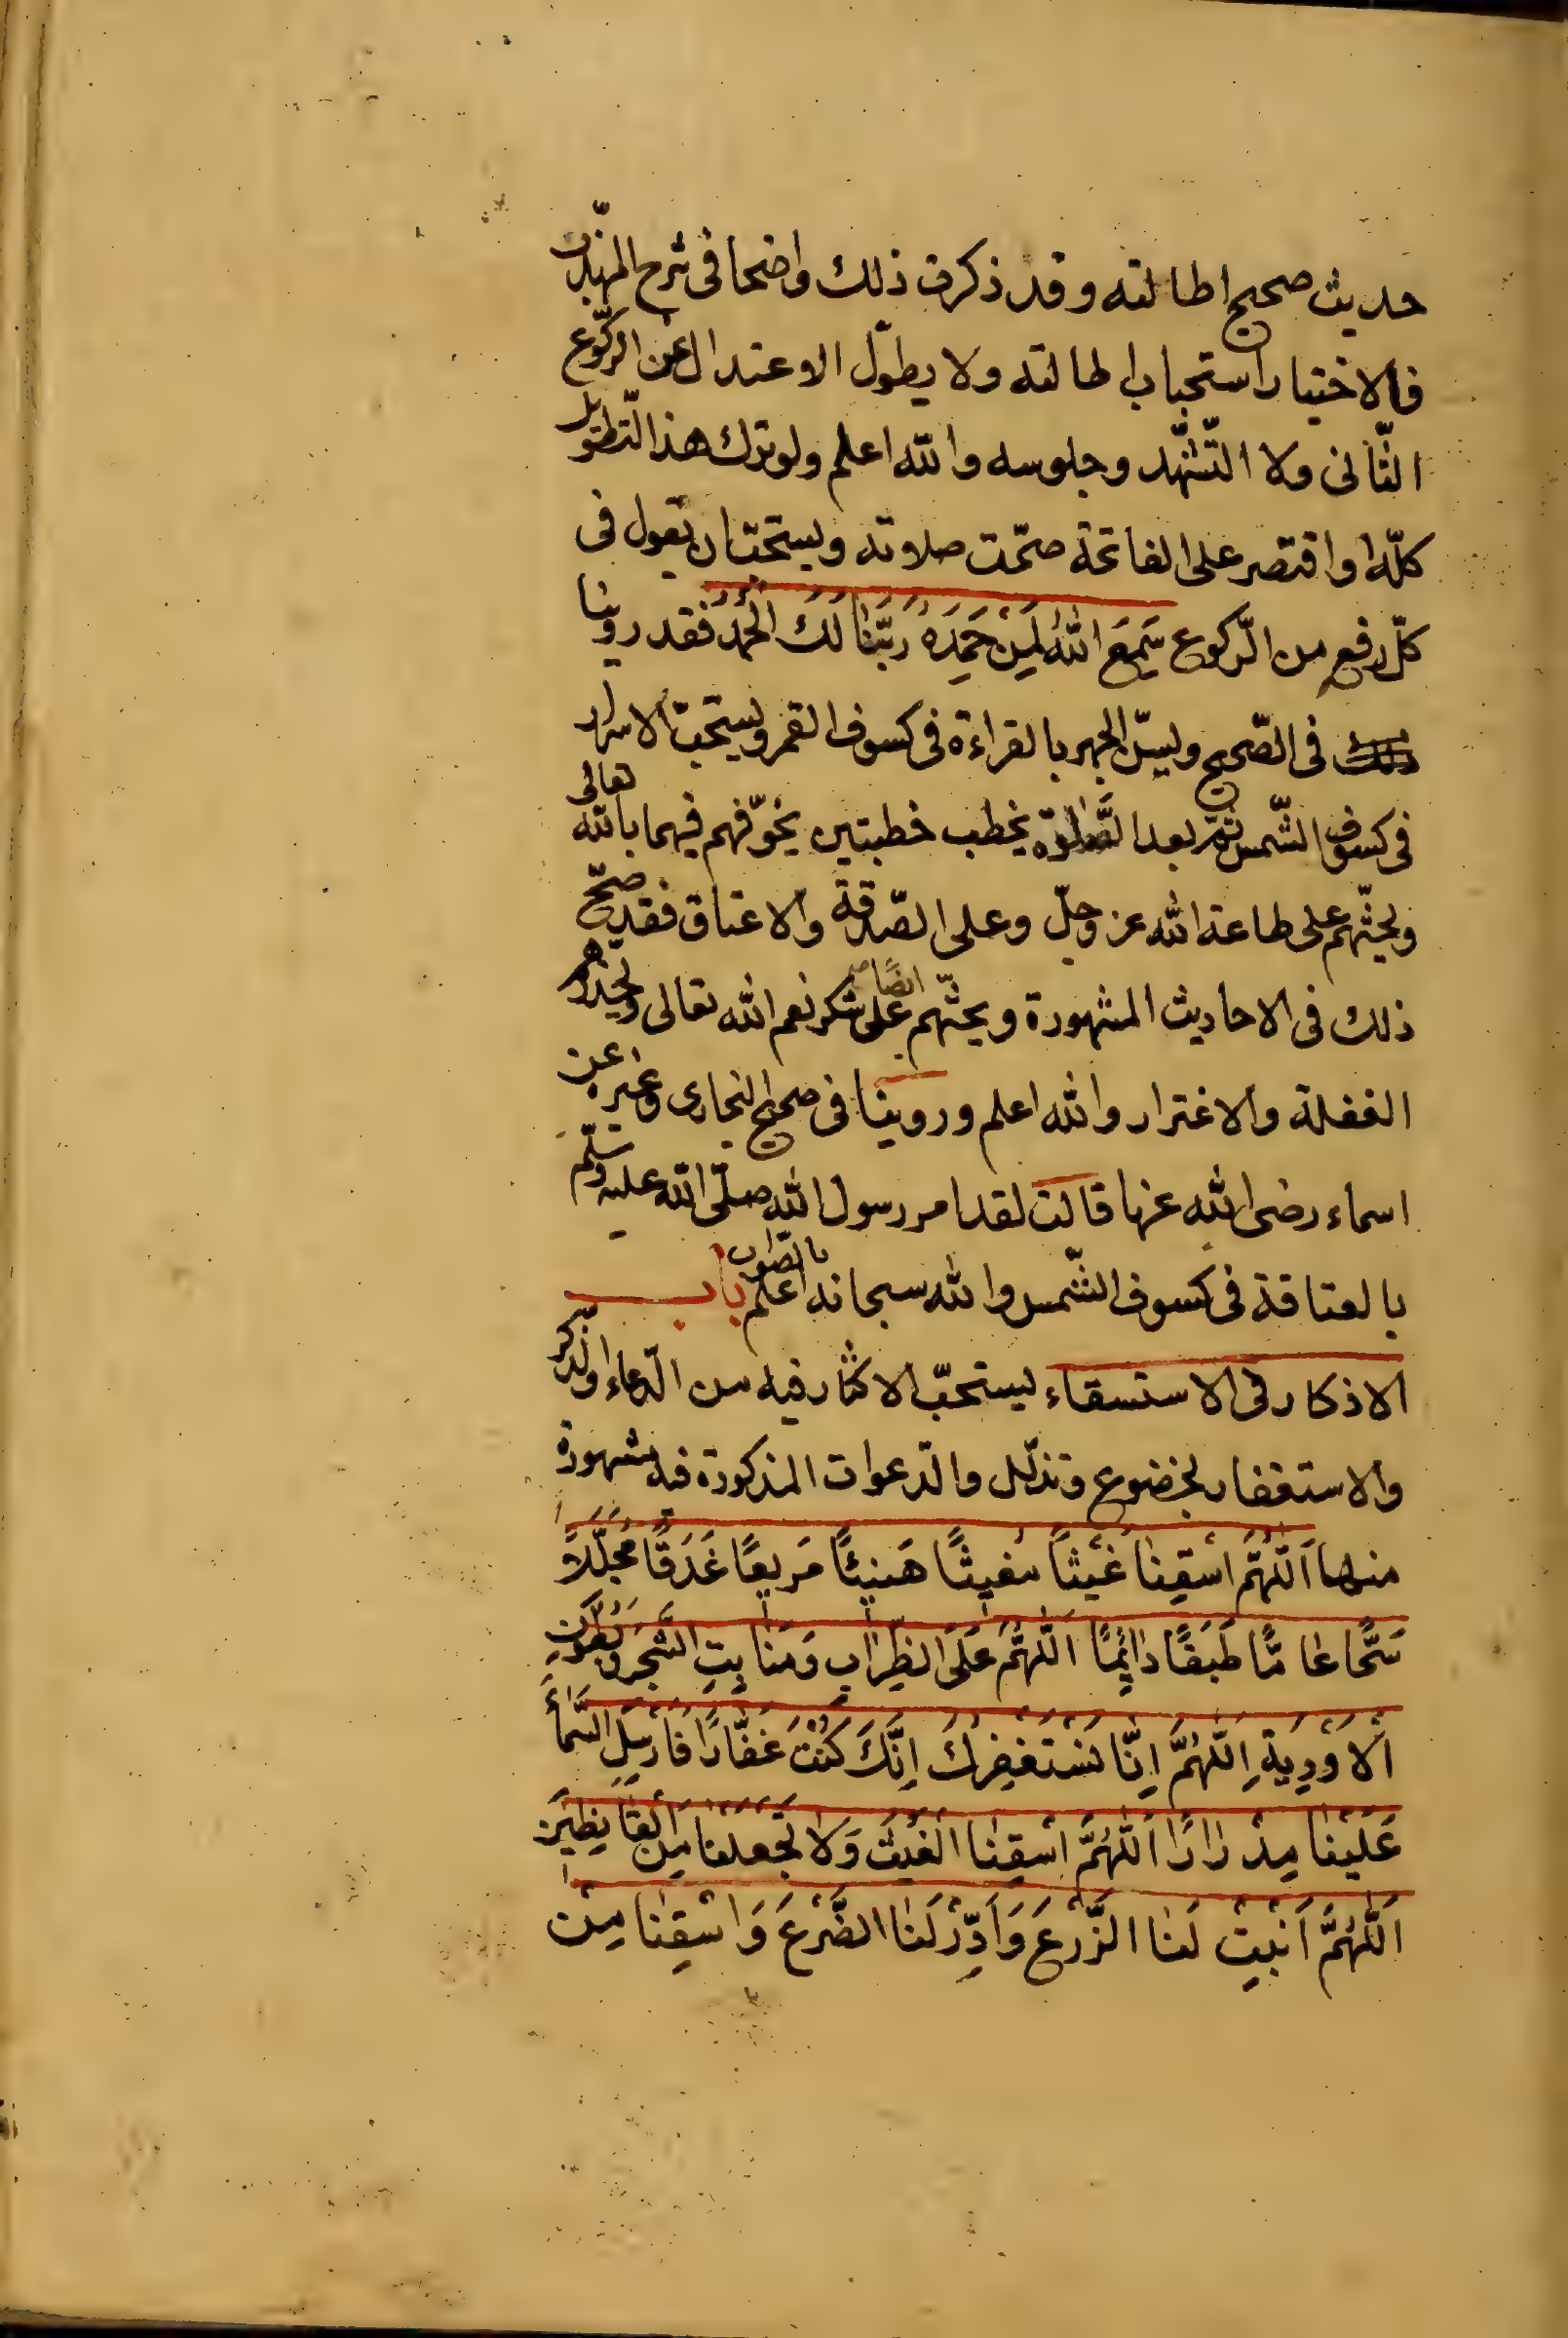 حديث صحيح اطالته وقد ذكرت ذلك واضحا فى شرح المهذّب
فالاختيار استحباب اطالته ولا يطوّل الاعتدال عن الرّكوع
الثّانى ولا التّشهّد وجلوسه والله اعلم ولو ترك هذا التّطويل
كلّه واقتصر على الفاتحة صحّت صلاته ويستحبّ ان يقول فى
كلّ رفع من الرّكوع سَمِعَ اللهُ لِمَنْ حَمِدَهُ رَبَّنَا لَكَ الْحَمْدُ فقد روينا
ذلك فى الصّحيح ويسنّ الجهر بالقراءة فى كسوف القمر ويستحبّ الاسرار
فى كسوف الشّمس ثمّ بعد الصّلوة يخطب خطبتين يخوّفهم فيهما بالله تعالى
ويحثّهم على طاعة الله عز وجلّ وعلى الصّدقة والاعتاق فقد صحّ
ذلك فى الاحاديث المشهورة ويحثّهم ايضًا على شكر نعم الله تعالى ويحذّرهم
الغفلة والاغترار والله اعلم وروينا فى صحيح البخارى وغيره عن
اسماء رضى الله عنها قالت لقد امر رسول الله صلّى الله عليه وسلّم
بالعتاقة فى كسوف الشّمس والله سبحانه اعلم بالصّواب باب
الاذكار فى الاستسقاء يستحبّ الاكثار فيه من الدّعاء والذّكر
والاستغفار بخضوع وتذلّل والدّعوات المذكورة فيه مشهورة
منها اَللّٰهُمَّ اسْقِنَا غَيْثًا مُغيثًا هَنيئًا مَريعًا غَدَقًا مُجَلَّلًا
سَحًّا عامًّا طَبَقًا دائِمًا اَللّٰهُمَّ عَلَى الظِّرَابِ وَمَنَابِتِ الشَّجَرِ وَبُطُونِ
اْلاَوْدِيَةِ اَللّٰهُمَّ اِنَّا نَسْتَغْفِرُكَ اِنَّكَ كُنْتَ غَفَّارًا فَاَرْسِلِ السَّمَاءَ
عَلَيْنَا مِدْرَارًا اَللّٰهُمَّ اسْقِنَا الْغَيْثَ وَلَا تَجْعَلْنَا مِنَ الْقَانِطِينَ
اَللّٰهُمَّ اَنْبِتْ لَنَا الزَّرْعَ وَاَدِّرْ لَنَا الضَّرْعَ وَاسْقِنَا مِنْ